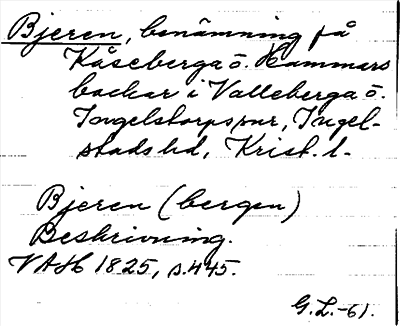 Bjeren, benämning på
Kåseberga o. Hammars
backar i Valleberga o.
Ingelstorps snr, Ingel-
stads hd, Krist. l.
Bjeren (bergen)
Beskrivning.
VAH 1825, s. 445.
G.L.-61.